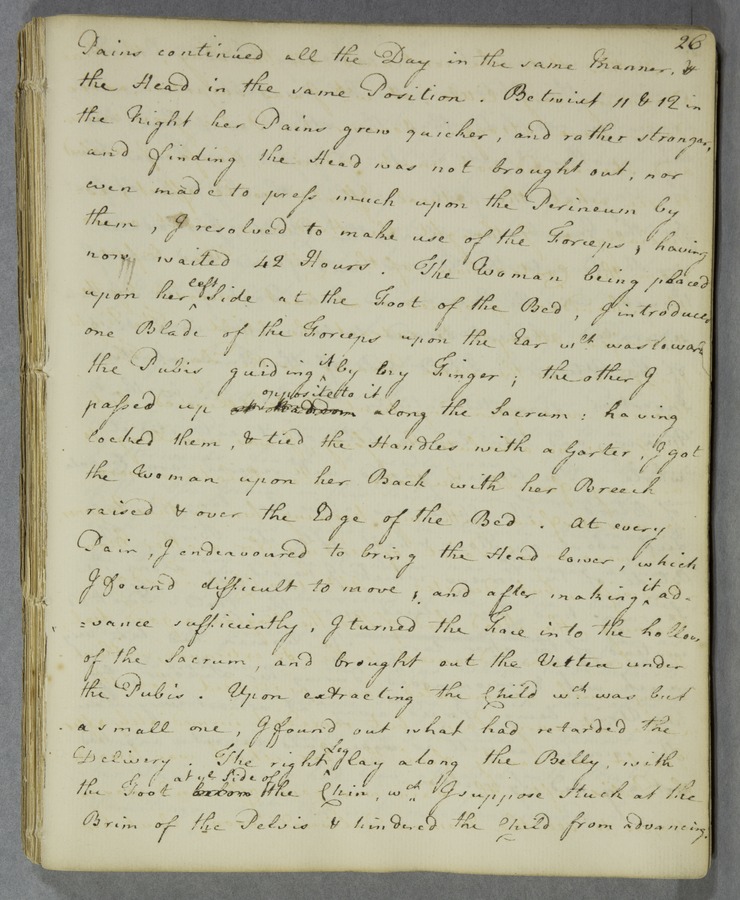 26
Pains continued all the Day in the same Manner. &
the Head in the same Position. Betwixt 11 & 12 in
the Night her Pains grew quicker, and rather stronger,
and finding the Head was not brought out, nor
even made to press much upon the Perineum by
them, I resolved to make use of the Forceps; having
now waited 42 Hours. The Woman being placed
upon her ^left Side at the Foot of the Bed, I introduced
one Blade of the Forceps upon the Ear wch was toward
the Pubis guiding ^it by my Finger; the other I
passed up opposite to it along the Sacrum: having
locked them, & tied the Handles with a Garter, I got
the Woman upon her Back with her Breech
raised & over the Edge of the Bed. At every
Pain, I endeavoured to bring the Head lower, which
I found difficult to move; and after making ^it ad-
=vance sufficiently, I turned the Face into the hollow
of the Sacrum, and brought out the Vertex under
the Pubis. Upon extracting the Child wch was but
a small one, I found out what had retarded the
Delivery. The right ^Leg lay along the Belly, with
the Foot at ye Side of the Chin, wch I suppose stuck at the
Brim of the Pelvis & hindered the Child from advancing.